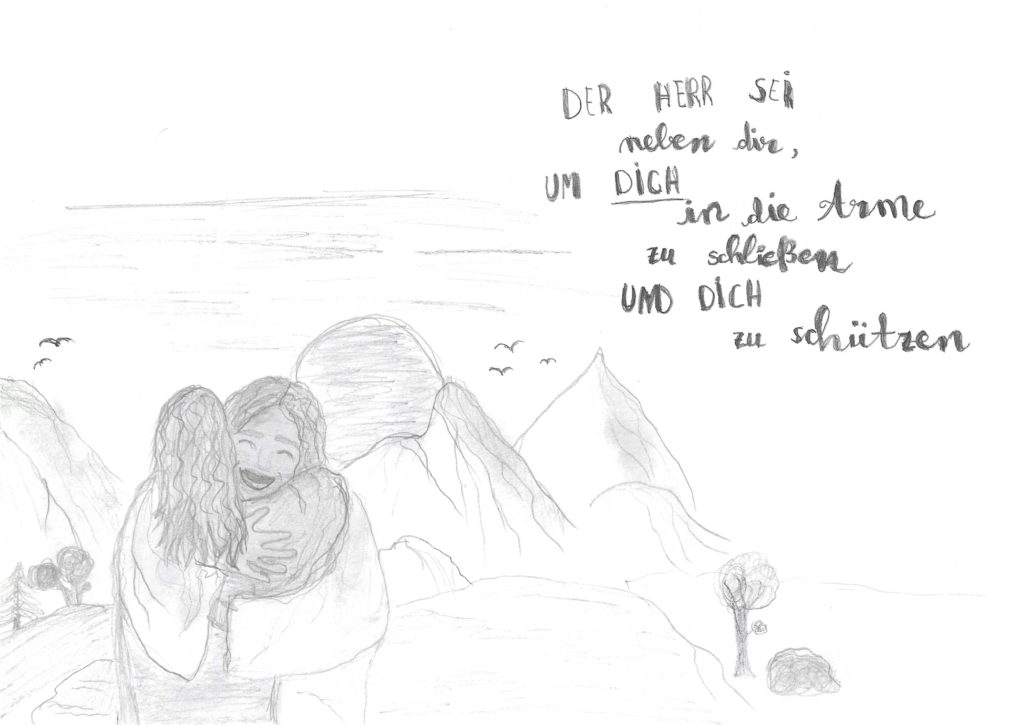 DER HERR SEI
neben dir,
UM DICH
in die Arme
zu schließen
UND DICH
zu schützen